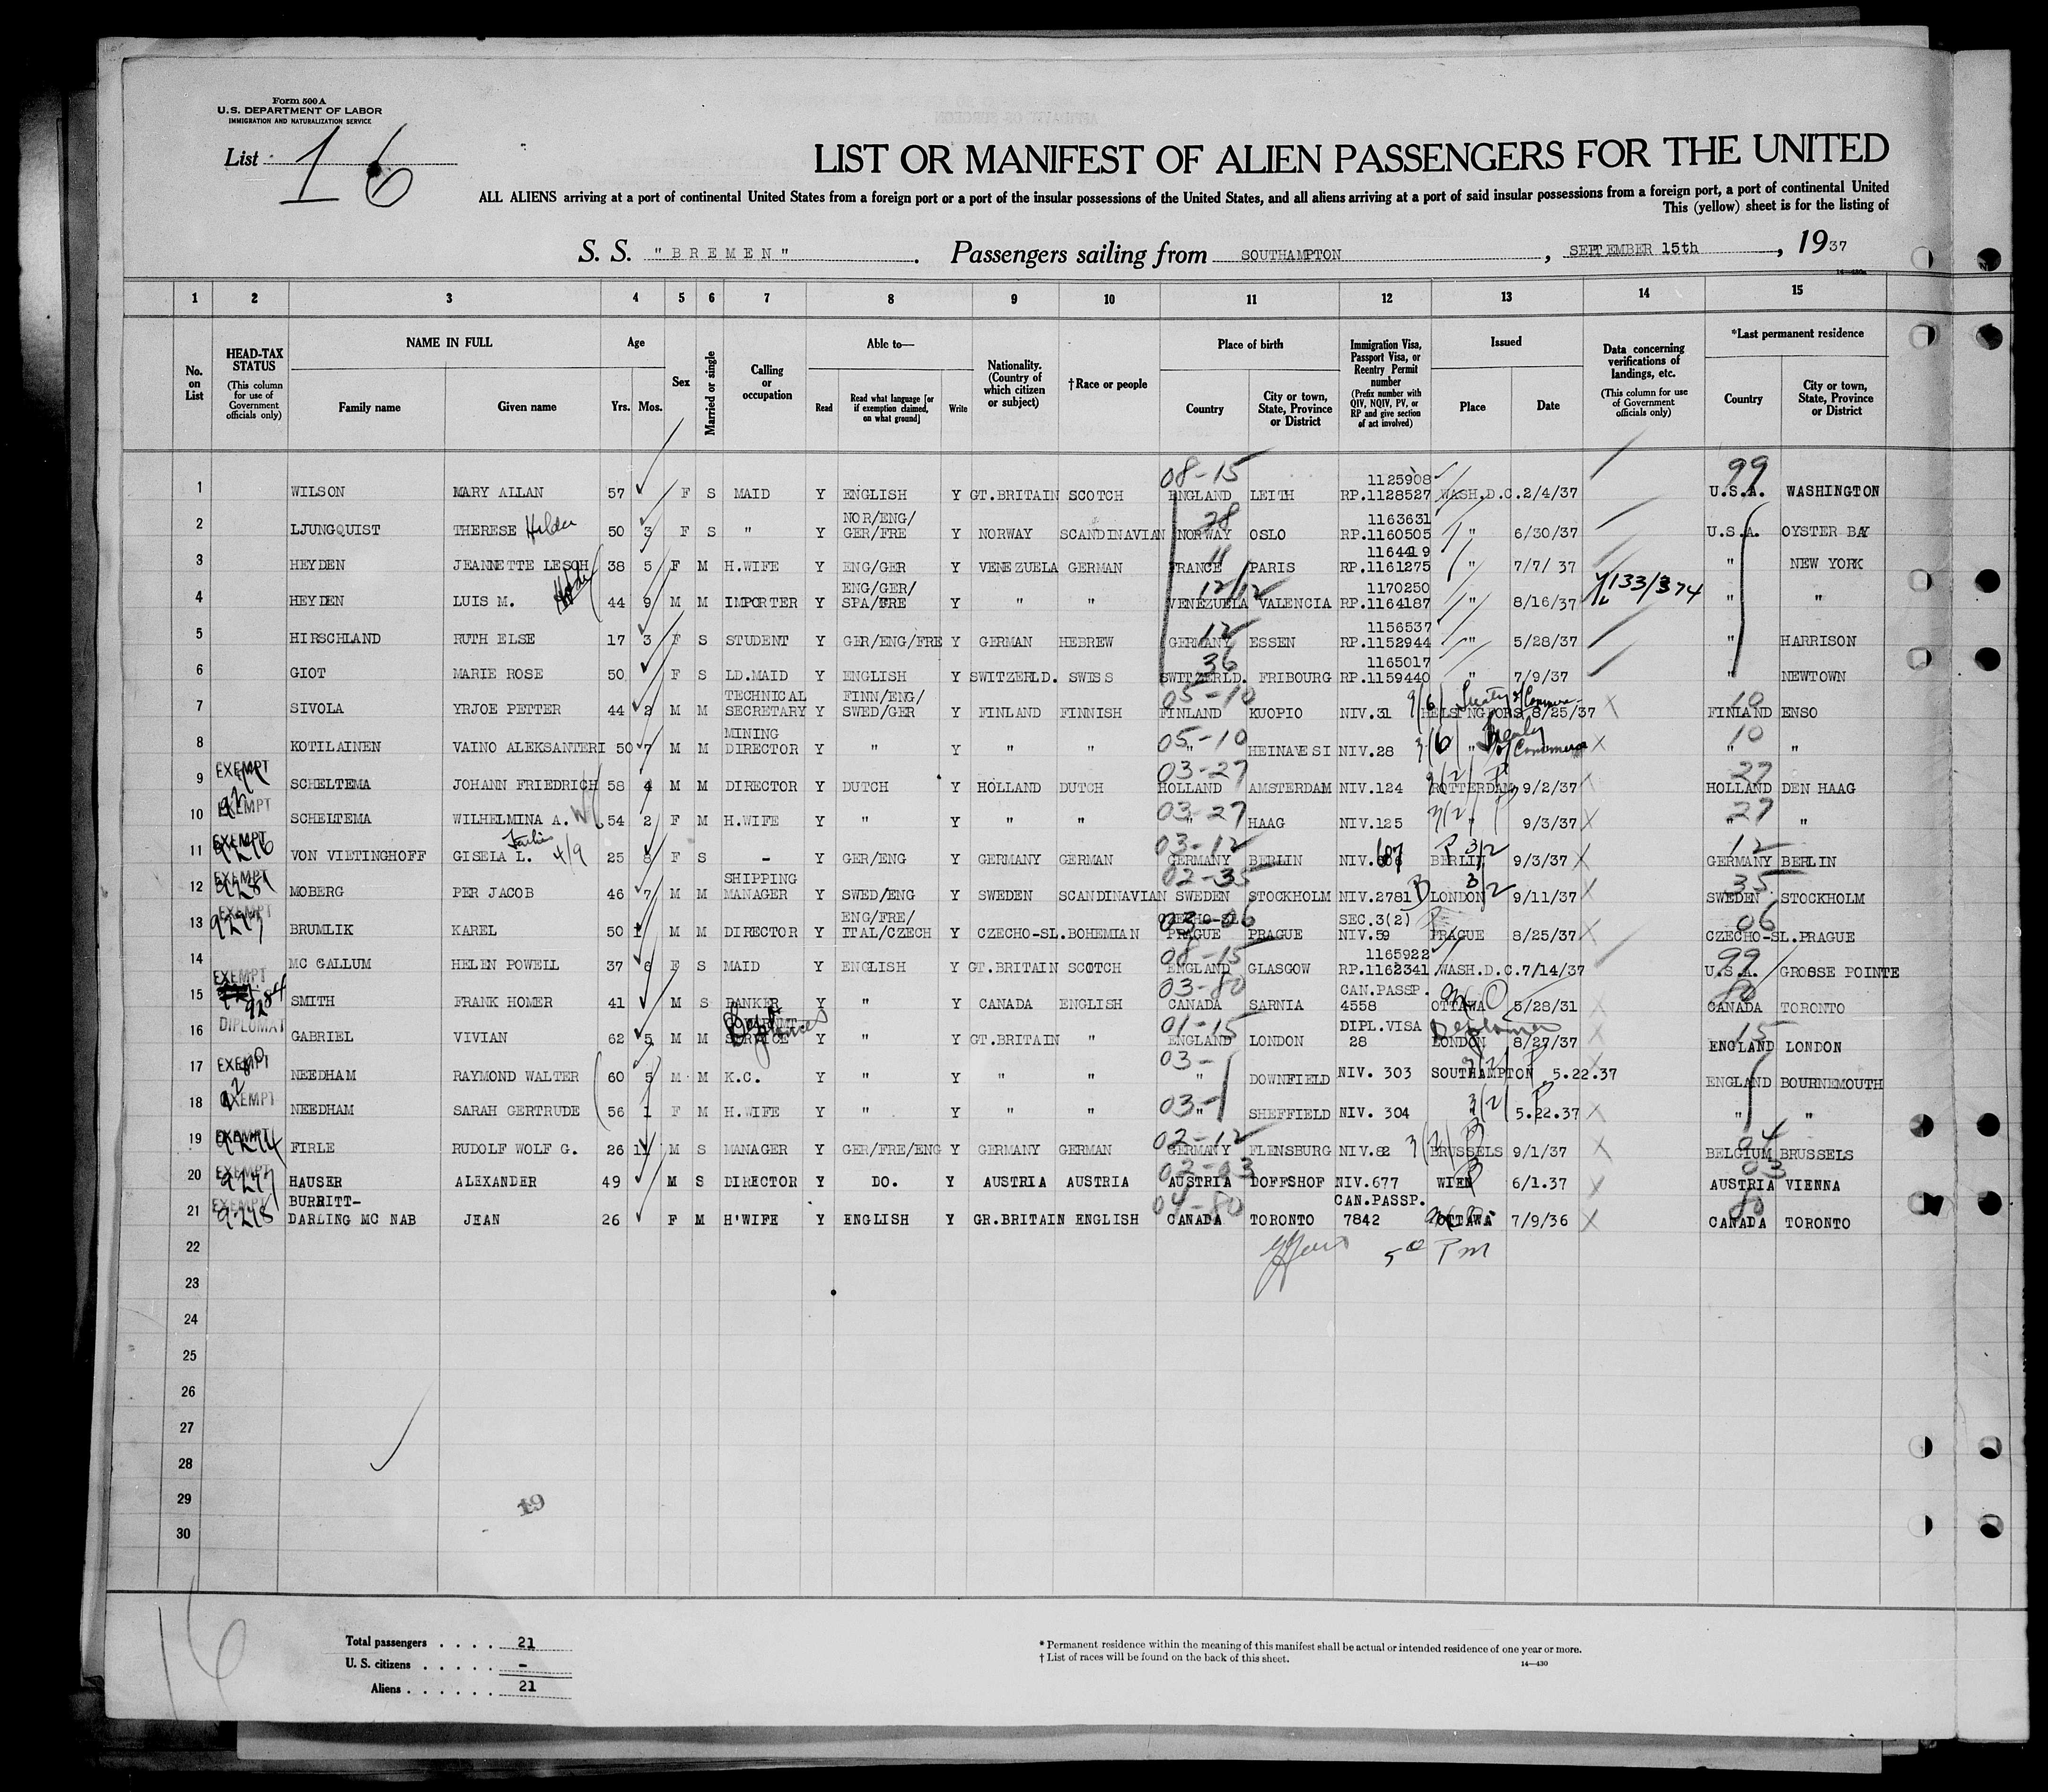 Form 500 A
U.S. DEPARTMENT OF LABOR
IMMIGRATION AND NATURALIZATION SERVICE
List 16
LIST OR MANIFEST OF ALIEN PASSENGERS FOR THE UNITED
ALL ALIENS arriving at a port of continental United States from a foreign port or a port of the insular possessions of the United States, and all aliens arriving at a port of said insular possessions from a foreign port, a port of continental United
This (yellow) sheet is for the listing of
S. S. "BREMEN". Passengers sailing from SOUTHAMPTON, SEPTEMBER 15th, 1937
14—430a
1 2 3 4 5 6 7 8 9 10 11 12 13 14 15
No. on List
HEAD-TAX STATUS (This column for use of Government officials only)
NAME IN FULL Family name Given name
Age Yrs. Mos.
Sex
Married or single
Calling or occupation
Able to— Read Read what language [or if exemption claimed, on what ground] Write
Nationality. (Country of which citizen or subject)
†Race or people
Place of birth Country City or town, State, Province or District
Immigration Visa, Passport Visa, or Reentry Permit number (Prefix number with QIV, NQIV, PV, or RP and give section of act involved)
Issued Place Date
Data concerning verifications of landings, etc. (This column for use of Government officials only)
*Last permanent residence Country City or town, State, Province or District
08-15 1125908 99
1 WILSON MARY ALLAN 57 F S MAID Y ENGLISH Y GT.BRITAIN SCOTCH ENGLAND LEITH RP.1128527 WASH.D.C. 2/4/37 U.S.A. WASHINGTON
NOR/ENG/ 28 1163631
2 LJUNGQUIST THERESE Hilda 50 3 F S " Y GER/FRE Y NORWAY SCANDINAVIAN NORWAY OSLO RP.1160505 " 6/30/37 U.S.A. OYSTER BAY
11 1164419
3 HEYDEN JEANNETTE LESCH 38 5 F M H.WIFE Y ENG/GER Y VENEZUELA GERMAN FRANCE PARIS RP.1161275 " 7/7/ 37 " NEW YORK
ENG/GER/ 12/12 1170250 133/374
4 HEYDEN LUIS M. 44 9 M M IMPORTER Y SPA/FRE Y " " VENEZUELA VALENCIA RP.1164187 " 8/16/37 " "
12 1156537
5 HIRSCHLAND RUTH ELSE 17 3 F S STUDENT Y GER/ENG/FRE Y GERMAN HEBREW GERMANY ESSEN RP.1152944 " 5/28/37 " HARRISON
36 1165017
6 GIOT MARIE ROSE 50 F S LD.MAID Y ENGLISH Y SWITZERLD. SWISS SWITZERLD. FRIBOURG RP.1159440 " 7/9/37 " NEWTOWN
TECHNICAL FINN/ENG/ 05-10 3/6/ Treaty of Commerce 10
7 SIVOLA YRJOE PETTER 44 2 M M SECRETARY Y SWED/GER Y FINLAND FINNISH FINLAND KUOPIO NIV.31 HELSINGFORS 8/25/37 X FINLAND ENSO
MINING 05-10 Treaty 10
8 KOTILAINEN VAINO ALEKSANTERI 50 7 M M DIRECTOR Y " Y " " " HEINAVESI NIV.28 3/6/ " of Commerce X " "
EXEMPT 03-27 3/2/ P 27
9 SCHELTEMA JOHANN FRIEDRICH 58 4 M M DIRECTOR Y DUTCH Y HOLLAND DUTCH HOLLAND AMSTERDAM NIV.124 ROTTERDAM 9/2/37 HOLLAND DEN HAAG
EXEMPT 03-27 3/2/ P 27
10 SCHELTEMA WILHELMINA A. 54 2 F M H.WIFE Y " Y " " " HAAG NIV.125 " 9/3/37 X " "
EXEMPT 9276 03-12 P 3/2 12
11 VON VIETINGHOFF GISELA L. 4/9 25 8 F S - Y GER/ENG Y GERMANY GERMAN GERMANY BERLIN NIV.687 BERLIN 9/3/37 X GERMANY BERLIN
EXEMPT 9281 SHIPPING 02-35 3/2 35
12 MOBERG PER JACOB 46 7 M M MANAGER Y SWED/ENG Y SWEDEN SCANDINAVIAN SWEDEN STOCKHOLM NIV.2781 B LONDON 9/11/37 X SWEDEN STOCKHOLM
EXEMPT 9277 ENG/FRE/ CZECHO-SL. 03-06 SEC.3(2) 06
13 BRUMLIK KAREL 50 1 M M DIRECTOR Y ITAL/CZECH Y CZECHO-SL. BOHEMIAN PRAGUE PRAGUE NIV.59 PRAGUE 8/25/37 X CZECHO-SL. PRAGUE
08-15 1165922 99
14 MC GALLUM HELEN POWELL 37 6 F S MAID Y ENGLISH Y GT.BRITAIN SCOTCH ENGLAND GLASGOW RP.1162341 WASH.D.C. 7/14/37 U.S.A. GROSSE POINTE
EXEMPT 9284 03-80 CAN.PASSP. 80
15 SMITH FRANK HOMER 41 M S BANKER Y " Y CANADA ENGLISH CANADA SARNIA 4558 OTTAWA 5/28/31 X CANADA TORONTO
DIPLOMAT 01-15 DIPL.VISA Diplomat 15
16 GABRIEL VIVIAN 62 5 M M SERVICE Y " Y GT.BRITAIN " ENGLAND LONDON 28 LONDON 8/27/37 X ENGLAND LONDON
EXEMPT 03- 3/2/ P
17 NEEDHAM RAYMOND WALTER 60 5 M M K.C. Y " Y " " " DOWNFIELD NIV. 303 SOUTHAMPTON 5.22.37 ENGLAND BOURNEMOUTH
EXEMPT 03- 3/2/ P
18 NEEDHAM SARAH GERTRUDE 56 1 F M H.WIFE Y " Y " " " SHEFFIELD NIV. 304 " 5.22.37 X " "
EXEMPT 9274 02-12 04
19 FIRLE RUDOLF WOLF G. 26 11 M S MANAGER Y GER/FRE/ENG Y GERMANY GERMAN GERMANY FLENSBURG NIV.82 3/2/ B BRUSSELS 9/1/37 X BELGIUM BRUSSELS
EXEMPT 9247 02-03 03
20 HAUSER ALEXANDER 49 M S DIRECTOR Y DO. Y AUSTRIA AUSTRIA AUSTRIA DOFFSHOF NIV.677 WIEN 6/1.37 X AUSTRIA VIENNA
EXEMPT 9248 BURRITT- 04-80 CAN.PASSP. 80
21 DARLING MC NAB JEAN 26 F M H'WIFE Y ENGLISH Y GR.BRITAIN ENGLISH CANADA TORONTO 7842 OTTAWA 7/9/36 X CANADA TORONTO
22 5⁰ Pm
23
24
25
26
27
28
29
30
19
16
Total passengers . . . . 21
U. S. citizens . . . . . -
Aliens . . . . . . 21
* Permanent residence within the meaning of this manifest shall be actual or intended residence of one year or more.
† List of races will be found on the back of this sheet.
14—430